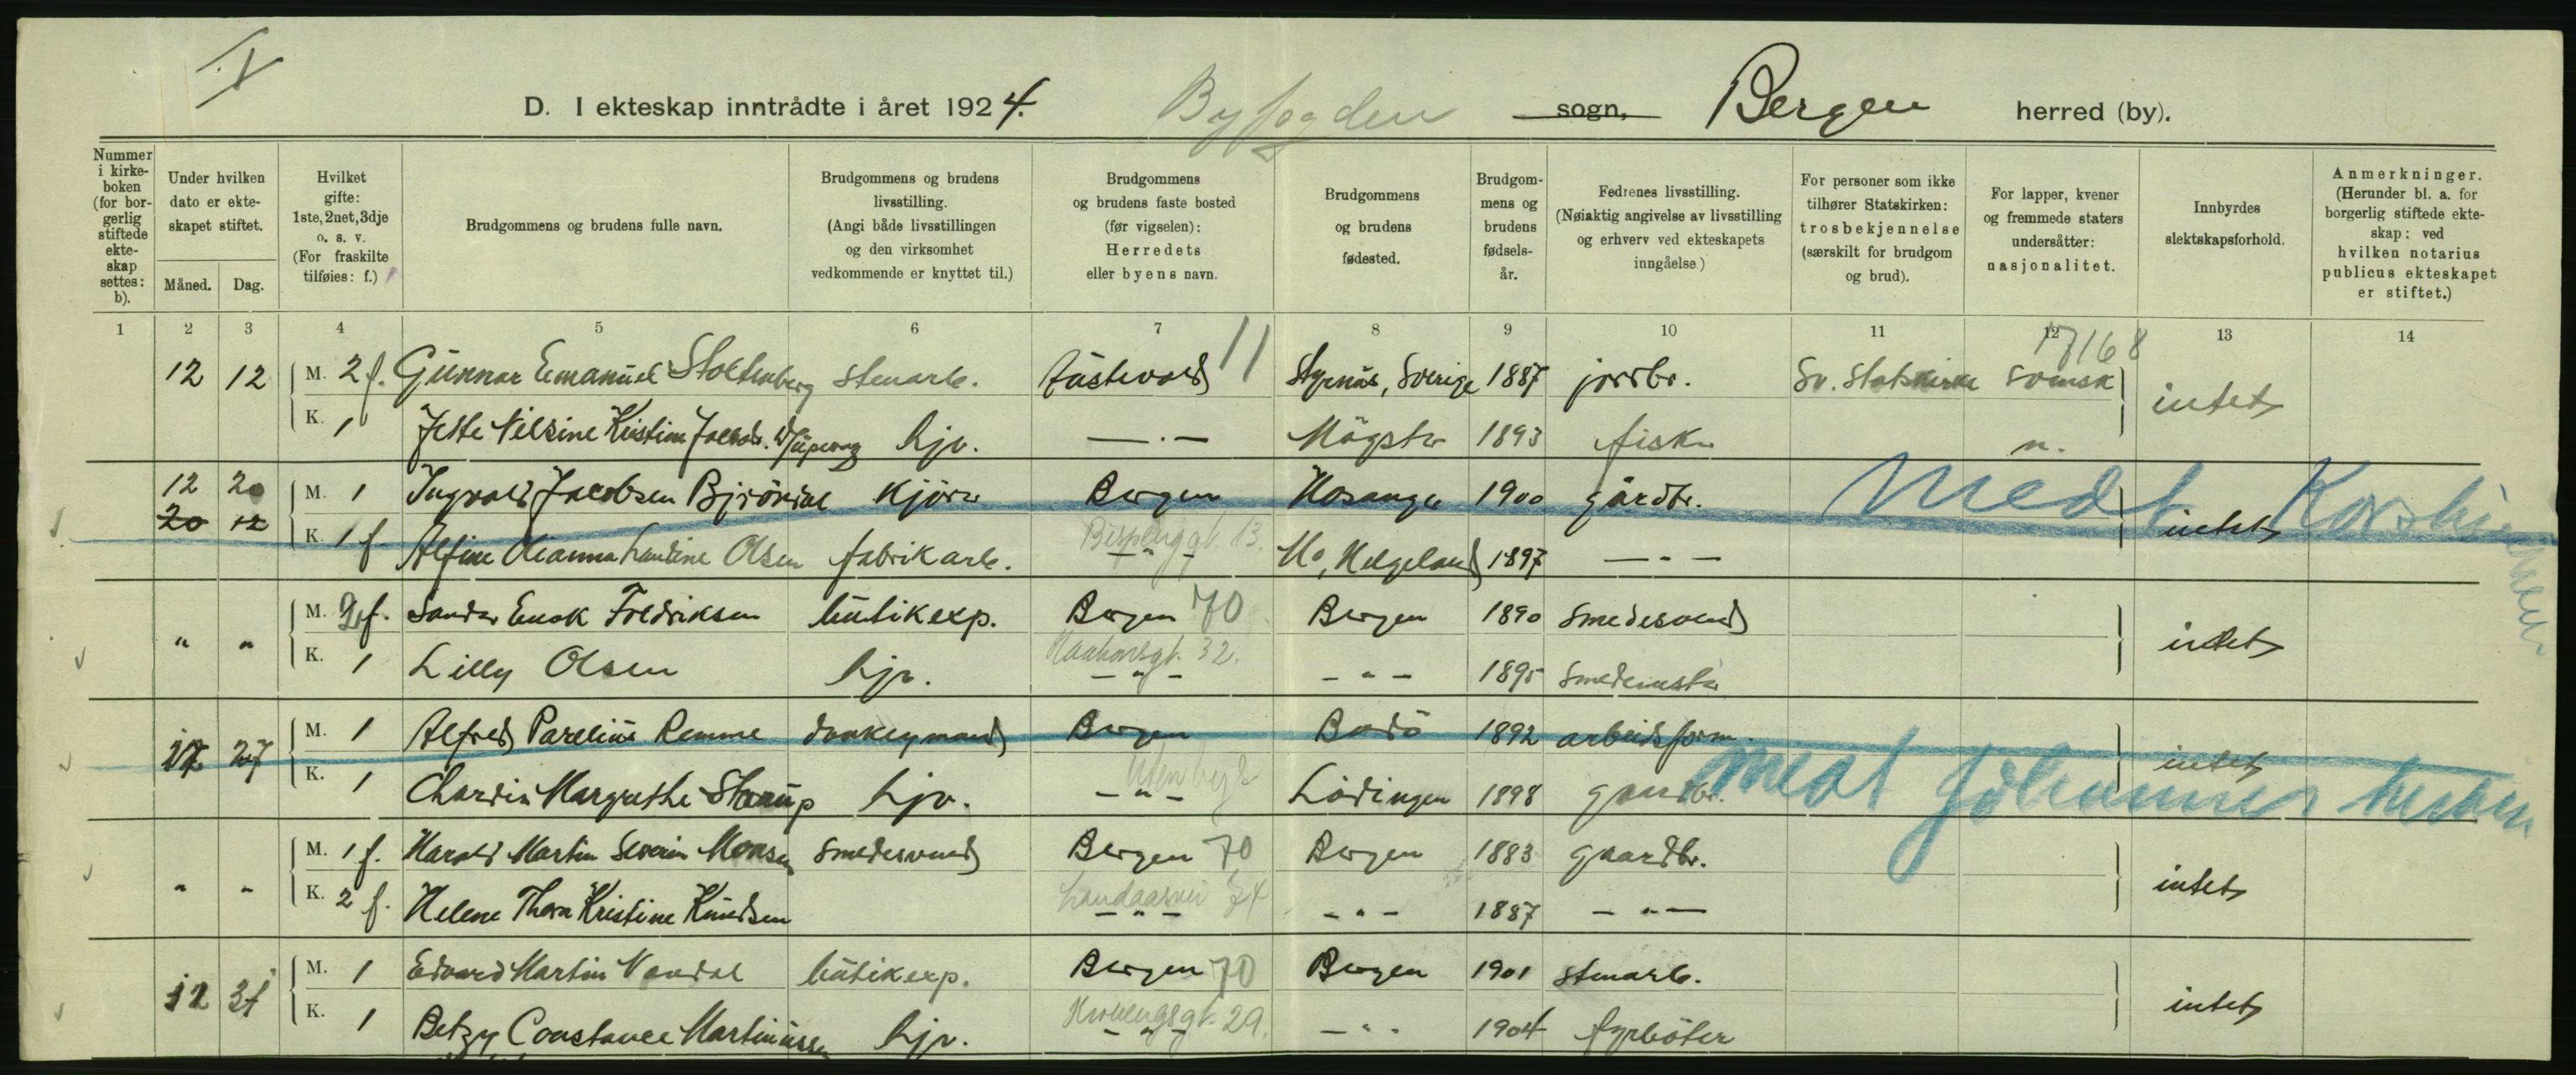 D. I ekteskap inntrådte i året 1924. Byfogden sogn, Bergen herred (by).
Nummer i kirkeboken (for borgerlig stiftede ekteskap settes: b).
Under hvilken dato er ekteskapet stiftet.
Måned. Dag.
Hvilket gifte: 1ste, 2net, 3dje o. s. v. (For fraskilte tilføies: f.)
Brudgommens og brudens fulle navn.
Brudgommens og brudens livsstilling. (Angi både livsstillingen og den virksomhet vedkommende er knyttet til.)
Brudgommens og brudens faste bosted (før vigselen): Herredets eller byens navn.
Brudgommens og brudens fødested.
Brudgommens og brudens fødselsår.
Fedrenes livsstilling. (Nøiaktig angivelse av livsstilling og erhverv ved ekteskapets inngåelse)
For personer som ikke tilhører Statskirken: trosbekjennelse (særskilt for brudgom og brud).
For lapper, kvener og fremmede staters undersåtter: nasjonalitet.
Innbyrdes slektskapsforhold.
Anmerkninger. (Herunder bl. a. for borgerlig stiftede ekteskap: ved hvilken notarius publicus ekteskapet er stiftet.)
1 2 3 4 5 6 7 8 9 10 11 12 13 14
11 17168
12 12 M. 2 f. Gunnar Emanuel Stoltenberg stenarb. Austevold Styrnäs, Sverige 1887 jordbr. Sv. Statskirke svensk intet
K. 1 Jette Nilsine Kristine Jakobsdr. —"— Møgster 1893 fisker n.
12 20 M. 1 Ingvald Jacobsen Bjørndal kjører Bergen Hosanger 1900 gårdbr. Medt Korskirken
20 12 K. 1 f. Alfine Olianna Landine Olsen fabrikarb. —"— 13. Mo, Helgeland 1897 —"— intet
" " M. 2 f. Sander Enok Fredriksen butikexp. Bergen 70 Bergen 1890 smedesvend intet
K. 1 Lilly Olsen hjv. Haakonsgt. 32. —"— —"— 1895 smedemester
12 27 M. 1 Alfred Parelius Remme donkeymand Bergen Bodø 1892 arbeidsform. intet
K. 1 Chardin Margrethe Storrup hjv. —"— Lødingen 1898 gaardbr. medt Johannes kirken
" " M. 1 f. Harald Martin Severin Monsen smedesvend Bergen 70 Bergen 1883 gaardbr. intet
K. 2 f. Helene Thora Kristine Knudsen Landaasvei 74 —"— —"— 1887 —"—
12 31 M. 1 Edvard Martin Vandal butikexp. Bergen 70 Bergen 1901 stenarb. intet
K. 1 Betzy Constance Martinussen hjv. 29. —"— —"— 1904 fyrbøter